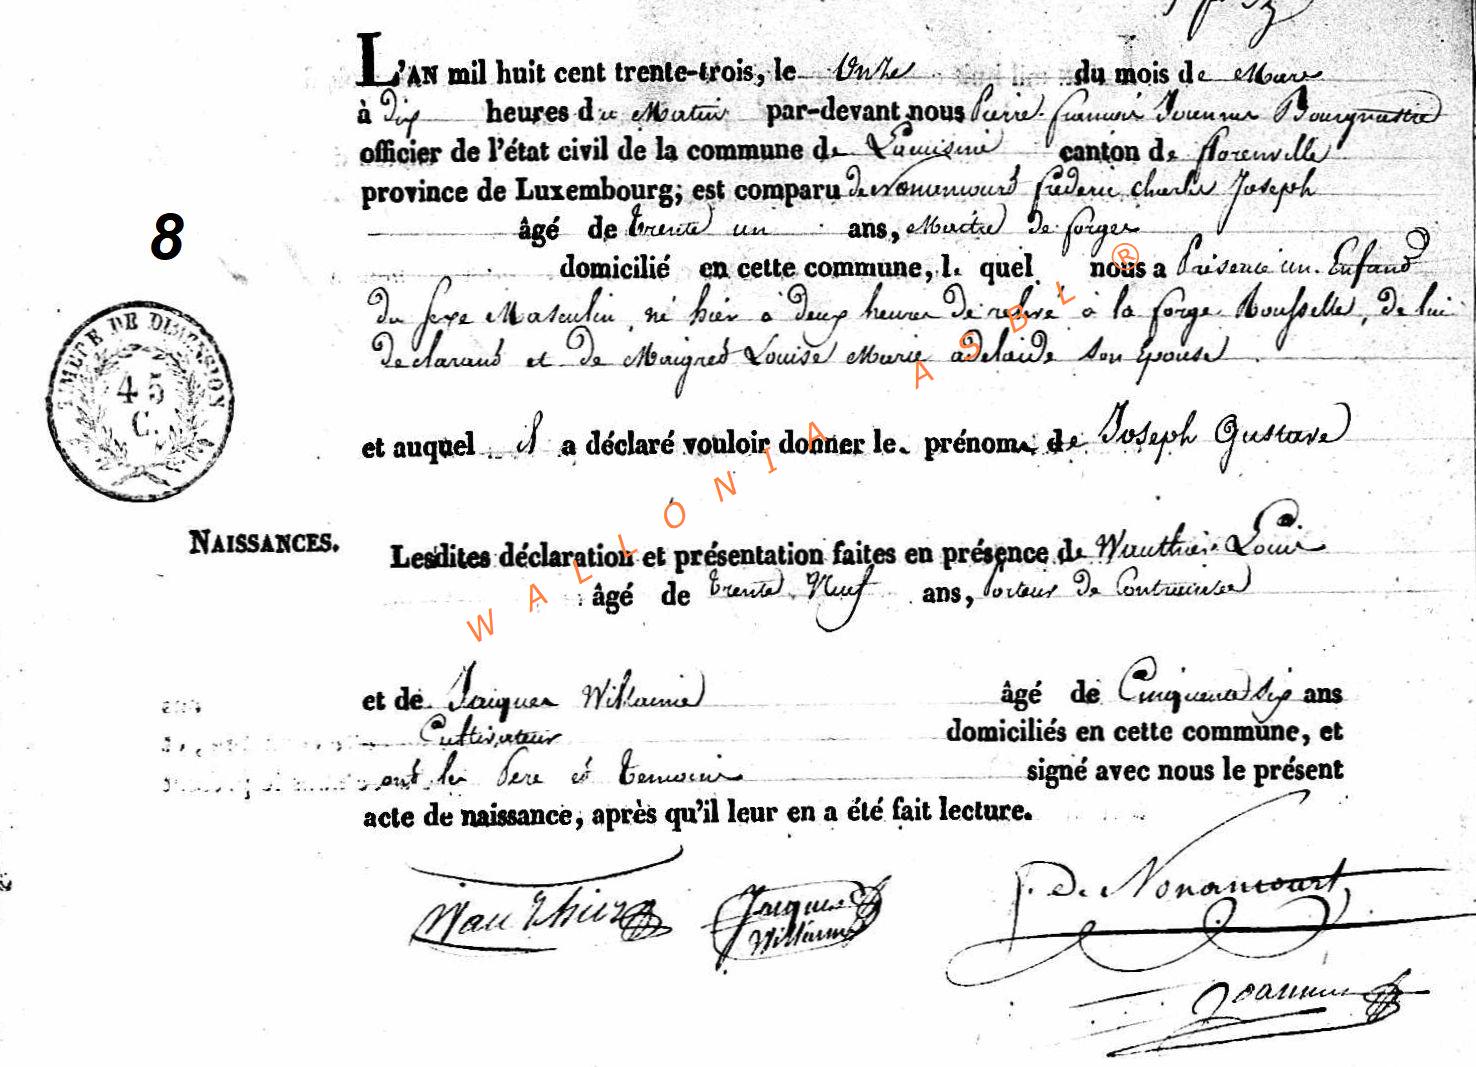 L'AN mil huit cent trente-trois, le onze du mois de Mars
à Dix heures du Matin par-devant nous Pierre françois Joannes Bourgmestre
officier de l'état civil de la commune de canton de florenville
province de Luxembourg; est comparu de Nonencourt frederic charles Joseph
âgé de trente un ans, Maitre de forges
8
domicilié en cette commune, le quel nous a Présenté un Enfand
du sexe Masculin, né hier à deux heures de relevé à la forge Rousselle, de lui
declarand et de Maigred Louise Marie adelaide son Epouse
TIMBRE DE DIMENSION
45
C.
et auquel il a déclaré vouloir donner le. prénom. de Joseph Gustave
NAISSANCES.
Lesdites déclaration et présentation faites en présence de Wauthier Louis
âgé de trente Neuf ans, Porteur de Contraintes
et de Jacques Willaime âgé de Cinquente Six ans
Cultivateur domiciliés en cette commune, et
ont les Pere et temoins signé avec nous le présent
acte de naissance, après qu'il leur en a été fait lecture.
Wauthier Jacques Willaime f. de Nonancourt
Joannes
WALLONIA ASBL ®